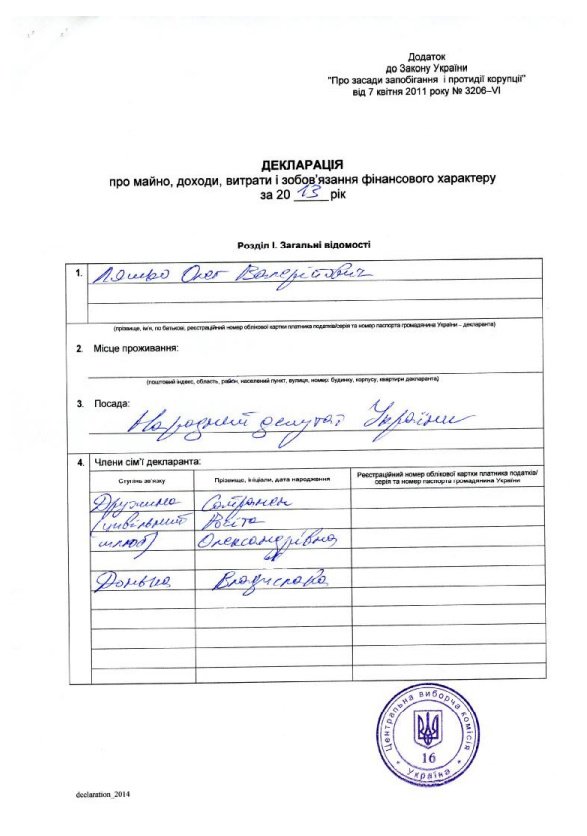 Додаток
до Закону України
"Про засади запобігання і протидії корупції"
від 7 квітня 2011 року № 3206–VI
ДЕКЛАРАЦІЯ
про майно, доходи, витрати і зобов'язання фінансового характеру
за 20 13 рік
Розділ I. Загальні відомості
1. Ляшко Олег Валерійович
(прізвище, ім'я, по батькові, реєстраційний номер облікової картки платника податків/серія та номер паспорта громадянина України – декларанта)
2. Місце проживання:
(поштовий індекс, область, район, населений пункт, вулиця, номер: будинку, корпусу, квартири декларанта)
3. Посада:
Народний депутат України
4. Члени сім'ї декларанта:
Ступінь зв'язку
Прізвище, ініціали, дата народження
Реєстраційний номер облікової картки платника податків/
серія та номер паспорта громадянина України
Дружина
(цивільний
шлюб)
Росіта
Олександрівна
Донька
Владислава
Центральна виборча комісія
16
Україна
declaration_2014